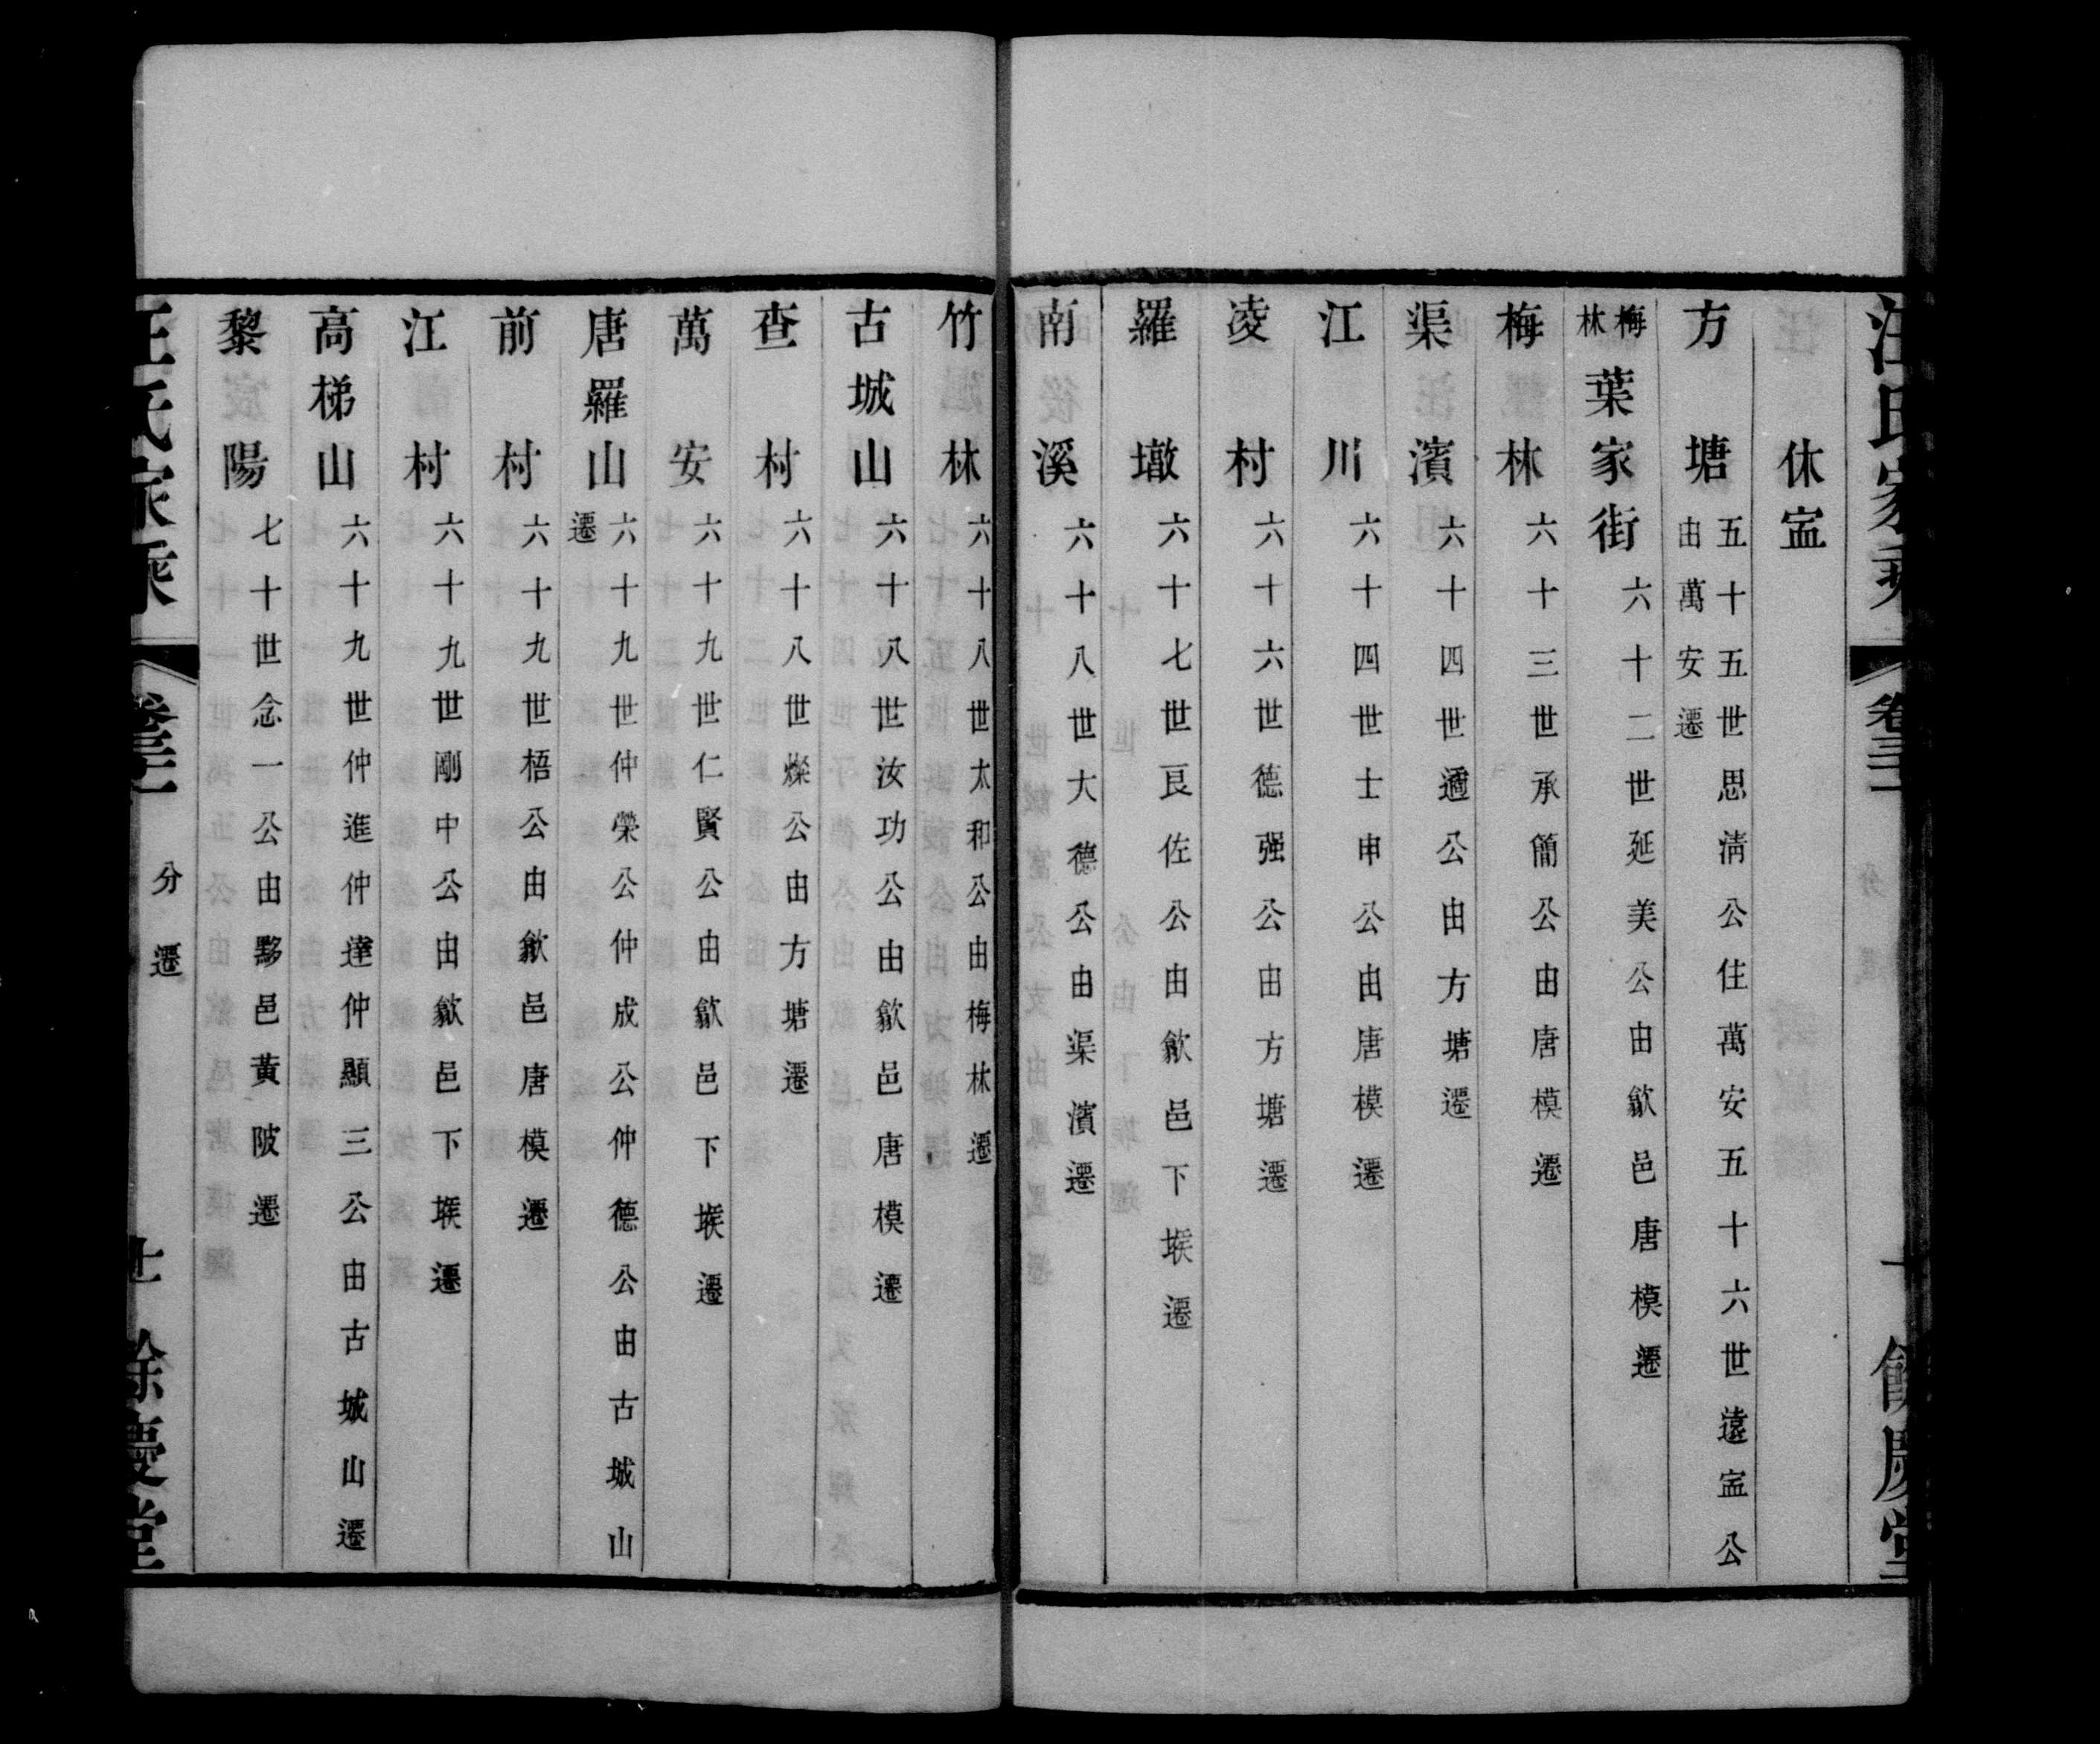 汪氏家乘 卷三十 餘慶堂
休寍
方塘 五十五世思淸公住萬安五十六世遠寍公由萬安遷
梅林葉家街 六十二世延美公由歙邑唐模遷
梅林 六十三世承簡公由唐模遷
渠濱 六十四世適公由方塘遷
江川 六十四世士申公由唐模遷
凌村 六十六世德强公由方塘遷
羅墩 六十七世良佐公由歙邑下堠遷
南溪 六十八世大德公由渠濱遷
竹林 六十八世太和公由梅林遷
古城山 六十八世汝功公由歙邑唐模遷
查村 六十八世燦公由方塘遷
萬安 六十九世仁賢公由歙邑下堠遷
唐羅山 六十九世仲榮公仲成公仲德公由古城山遷
前村 六十九世梧公由歙邑唐模遷
江村 六十九世剛中公由歙邑下堠遷
高梯山 六十九世仲進仲達仲顯三公由古城山遷
黎陽 七十世念一公由黟邑黃陂遷
汪氏家乘 分遷 餘慶堂